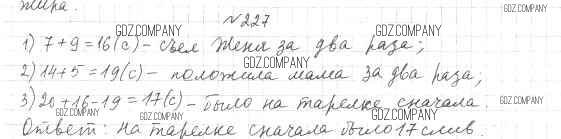 жира.
№227
GDZ.COMPANY GDZ.COMPANY
1) 7+9=16(с) – съел Женя за два раза;
GDZ.COMPANY
2) 14+5=19(с) – положила мама за два раза;
3) 20+16-19=17(с) – было на тарелке сначала.
GDZ.COMPANY GDZ.COMPANY GDZ.COMPANY GDZ.COMPANY
Ответ: на тарелке сначала было 17 слив.